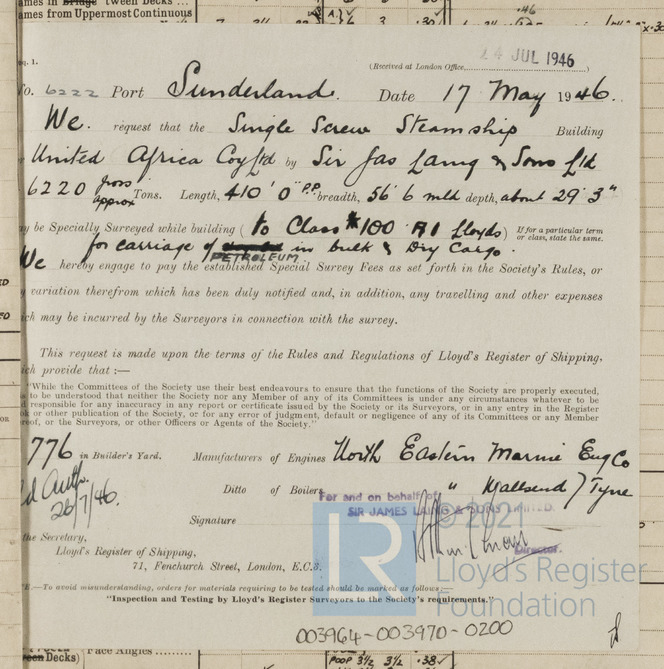 ames in Bridge 'tween Decks ...
ames from Uppermost Continuous
24 JUL 1946
(Received at London Office,
No. 6222 Port Sunderland. Date 17 May 1946.
We. request that the Single Screw Steamship Building
United Africa Coy Ltd by Sir Jas Laing & Sons Ltd
6220 gross approx Tons. Length, 410' 0" P.P. breadth, 56' 6 mld depth, about 29' 3"
y be Specially Surveyed while building (to Class 100 A1 Lloyds) If for a particular term or class, state the same.
for carriage of PETROLEUM in bulk & Dry Cargo.
We hereby engage to pay the established Special Survey Fees as set forth in the Society's Rules, or
variation therefrom which has been duly notified and, in addition, any travelling and other expenses
ch may be incurred by the Surveyors in connection with the survey.
This request is made upon the terms of the Rules and Regulations of Lloyd's Register of Shipping,
ch provide that :—
"While the Committees of the Society use their best endeavours to ensure that the functions of the Society are properly executed,
s to be understood that neither the Society nor any Member of any of its Committees is under any circumstances whatever to be
d responsible for any inaccuracy in any report or certificate issued by the Society or its Surveyors, or in any entry in the Register
k or other publication of the Society, or for any error of judgment, default or negligence of any of its Committees or any Member
reof, or the Surveyors, or other Officers or Agents of the Society."
776 in Builder's Yard. Manufacturers of Engines North Eastern Marine Eng Co
Ditto of Boilers " Wallsend / Tyne
26/7/46.
For and on behalf of
SIR JAMES LAING & SONS LIMITED.
Signature
Director.
the Secretary,
Lloyd's Register of Shipping,
71, Fenchurch Street, London, E.C.3.
© 2021
LR
Lloyd's Register
Foundation
E.—To avoid misunderstanding, orders for materials requiring to be tested should be marked as follows
"Inspection and Testing by Lloyd's Register Surveyors to the Society's requirements."
003964-003970-0200
Decks) Face Angles
POOP 3½ 3½ .38